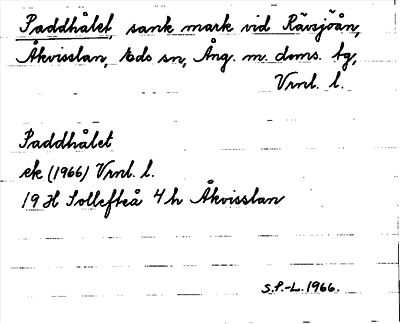 Paddhålet, sank mark vid Rävsjöån,
Åkvisslan, Eds sn, Ång. m. doms. tg,
Vrnl. l.
Paddhålet
ek (1966) Vrnl. l.
19 H Sollefteå 4 h Åkvisslan
S.P.-L. 1966.